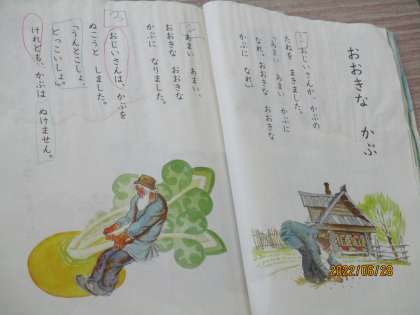 おおきな かぶ
おじいさんが、かぶの
たねを まきました。
「あまい あまい かぶに
なれ。おおきな おおきな
かぶに なれ。」
あまい あまい、
おおきな おおきな
かぶに なりました。
おじいさんは、かぶを
ぬこうと しました。
「うんとこしょ、
どっこいしょ。」
けれども、かぶは ぬけません。
2022/06/28